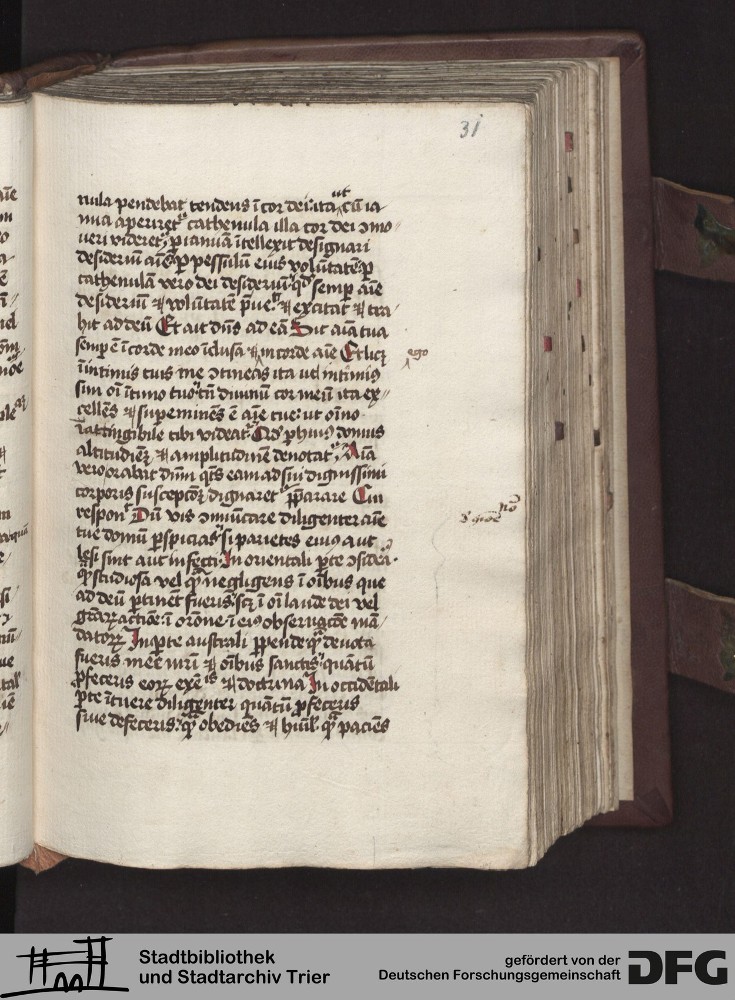 31
nula pendebat tendens ī cor dei: ita ut cū ia
nua aperiret᷑ cathenula illa cor dei ꝯmo
ueri videret᷑, ꝑ ianuā ītellexit designari
desideriū aīe, ꝑ pessulū eius volūtatē, ꝑ
cathenulā vero dei desideriū, qd semꝑ aīe
desideriū ⁊ volūtatē p̄ue. ⁊ excitat ⁊ tra
hit ad deū Et ait dn̄s ad eā Sic aīa tua
semꝑ ē ī corde meo īclusa ⁊ ī corde aīe Et licꝫ
ego
ī intimis tuis me ꝯtineas ita ut intimiꝯ
sim oī ītimo tuo, tn̄ diuinū cor meū ita ex
cellēs ⁊ suꝑeminēs ē aīe tue: ut oīno
īattingibile tibi videat᷑. Qd ꝑ huiꝰ domus
altitudinē ⁊ amplitudinē denotat᷑, Aīa
vero orabat dn̄m q̄s eam ad sui dignissimi
corporis susceptōꝫ dignaret᷑ p̄parare Cui
respon᷑ Dū vis ꝯmunicare diligenter aīe
tue domū ꝑspicias, si parietes eius aut
lesi sint aut infecti. In orientali ꝑte ꝯsidea.
q̄ studiosa vel q̄ negligens ī oībus que
ad deū ꝑtinēt fueris, scꝫ ī oī laude dei vel
gr̄aꝝ actione ī orōne ī eiꝰ obseruatōe mā
datoꝝ In ꝑte australi ꝑpende q̄ deuota
fueris mee mr̄i ⁊ oībus sanctis, quātū
ꝓfeceris eoꝝ exēis ⁊ doctrina In occidētali
ꝑte ītuere diligenter quātū ꝓfeceris
siue defeceris, q̄ obediēs ⁊ hūil. q̄ paciēs
Stadtbibliothek
und Stadtarchiv Trier
gefördert von der
Deutschen Forschungsgemeinschaft
DFG